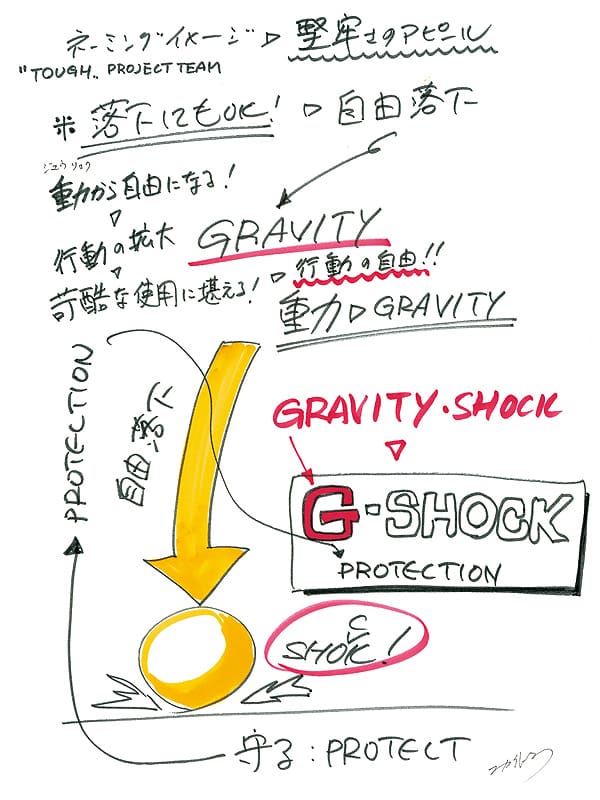 ネーミングイメージ▷堅牢さのアピール
"TOUGH„ PROJECT TEAM
※落下にもOK! ▷自由落下
ジュウリョク
重力から自由になる!
▽
行動の拡大
GRAVITY
▽
苛酷な使用に堪える! ▷行動の自由!!
重力▷GRAVITY
PROTECTION
自由落下
GRAVITY・SHOCK
▽
G-SHOCK
PROTECTION
C
SHOK!
守る:PROTECT